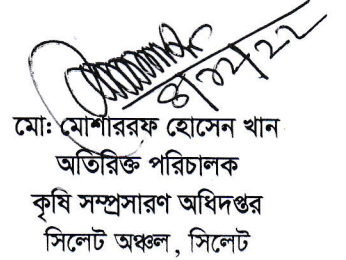 মো: মোশাররফ হোসেন খান
অতিরিক্ত পরিচালক
কৃষি সম্প্রসারণ অধিদপ্তর
সিলেট অঞ্চল, সিলেট